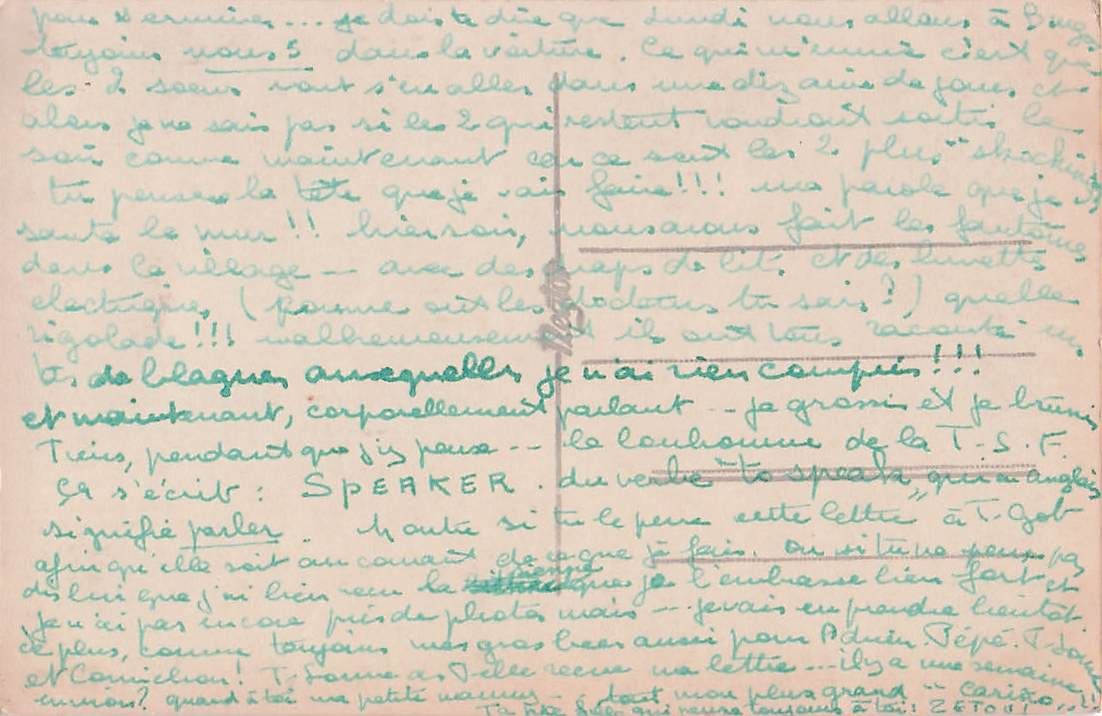 pour terminer... je dois te dire que Lundi nous allons à
toujours nous 5 dans la voiture. Ce qui m'ennuie c'est que
les 2 soeurs vont s'en aller dans une dizaine de jours et
alors je ne sais pas si les 2 qui restent voudront sortir le
soir comme maintenant car ce sont les 2 plus "shocking"
tu penses la tête que je vais faire!!! ma parole que je
saute le mur!! hier soir, nous avons fait les fantômes
dans le village — avec des draps de lit. et des lunettes
électriques (comme ont les docteurs tu sais?) quelle
rigolade!!! malheureusement ils ont tous raconté un
tas de blagues auxquelles je n'ai rien compris!!!
et maintenant, corporellement parlant -- je grossis et je brunis
Tiens, pendant que j'y pense -- le bonhomme de la T.S.F.
ça s'écrit: SPEAKER. du verbe "to speak" qui en anglais
signifie parler. Montre si tu le peux cette lettre à T. Gob
afin qu'elle soit au courant de ce que je fais. ou si tu ne peux pas
dis lui que j'ai bien reçu la sienne que je l'embrasse bien fort et
je n'ai pas encore pris de photos mais -- je vais en prendre bientôt
de plus, comme toujours mes gros baisers aussi pour Pépé. T.
et Cornichon! T. a-t-elle reçu ma lettre ... il y a une semaine
environ? quand à toi ma petite maman - tout mon plus grand
Ta qui pense toujours à toi!
Nozais